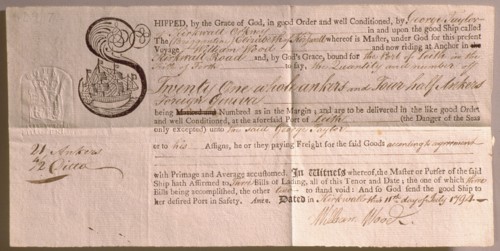 SHIPPED, by the Grace of God, in good Order and well Conditioned, by George Taylor
Kirkwall Orkney in and upon the good Ship called
The whereof is Master, under God for this present
Voyage William Wood and now riding at Anchor in the
Kirkwall Road and, by God's Grace, bound for the Port of Leith in the
Firth of Forth to say, the Quantity and number of
Twenty One whole ankers and Four half Ankers
Foreign Geneva
being Numbred as in the Margin; and are to be delivered in the like good Order,
and well Conditioned, at the aforesaid Port of Leith (the Danger of the Seas
only excepted) unto the said George Taylor
or to his Assigns, he or they paying Freight for the said Goods according to agreement
21 Ankers
4/2 Ditto
with Primage and Average accustomed. In Witness whereof, the Master or Purser of the said
Ship hath Affirmed to Bills of Lading, all of this Tenor and Date; the one of which
Bills being accomplished, the other to stand void: And so God send the good Ship
to her desired Port in Safety. Amen. Dated in Kirkwall this day of July
William Wood